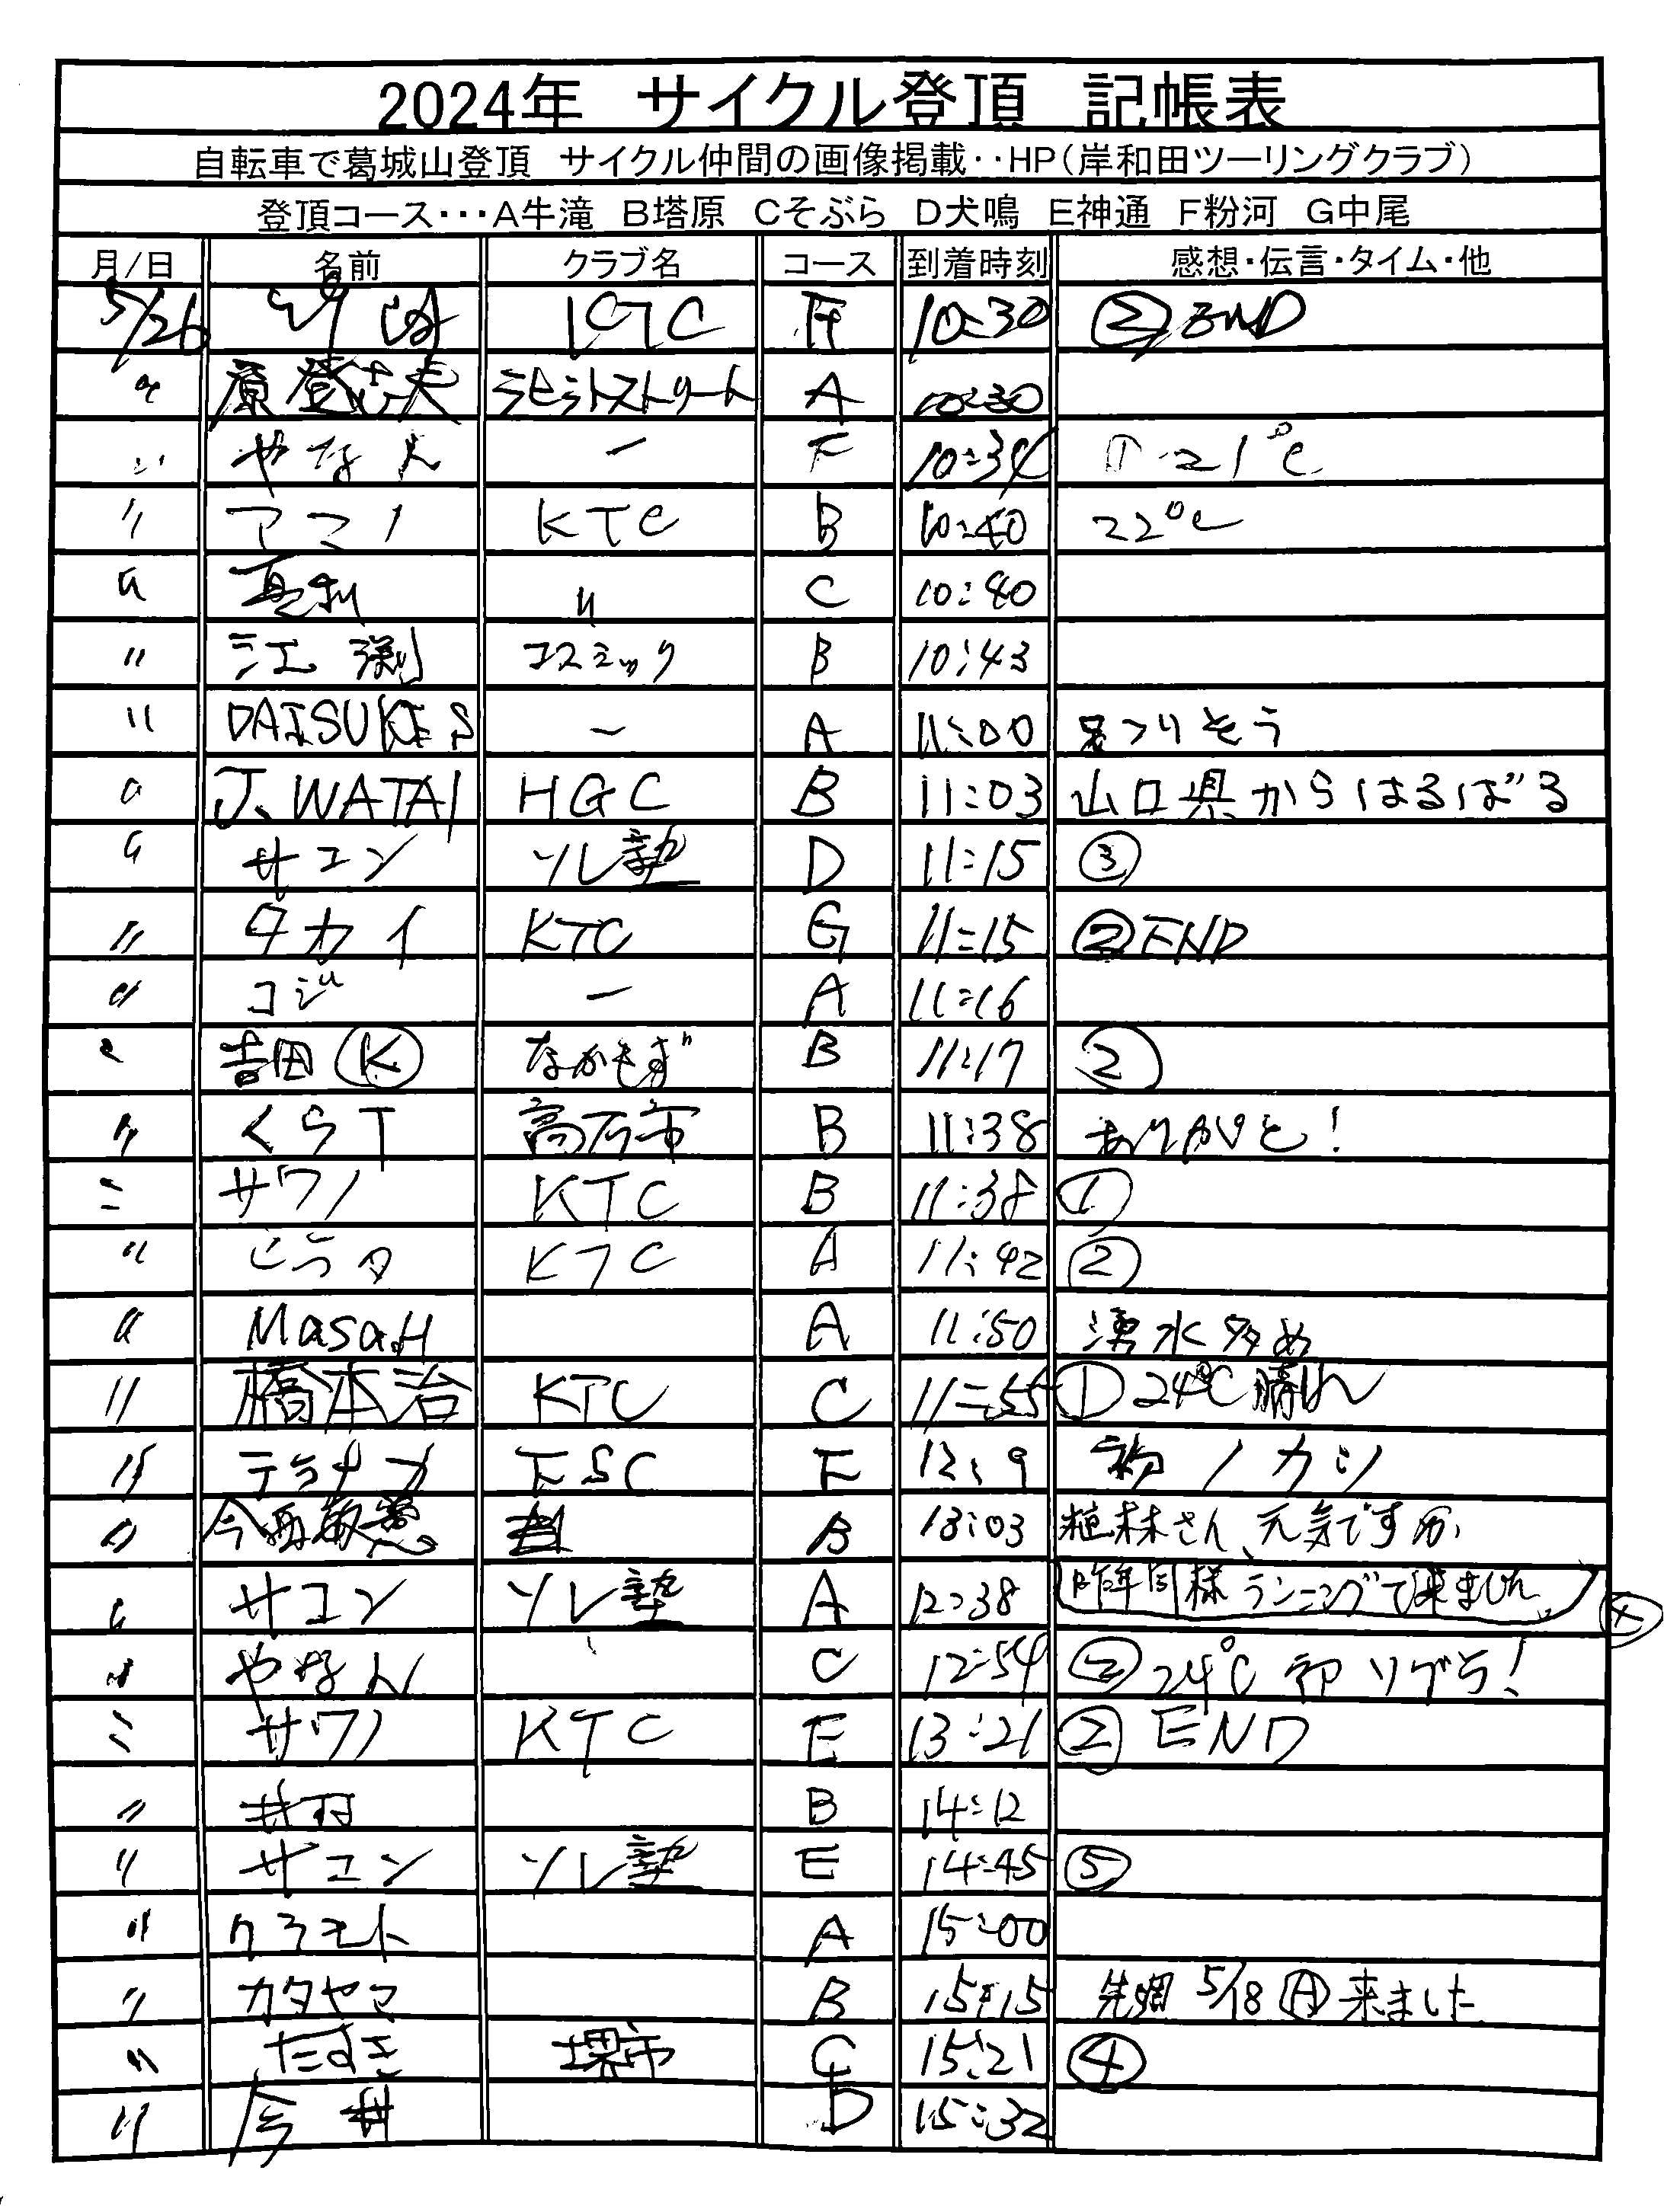 2024年 サイクル登頂 記帳表
自転車で葛城山登頂 サイクル仲間の画像掲載‥HP(岸和田ツーリングクラブ)
登頂コース･･･A牛滝 B塔原 Cそぶら D犬鳴 E神通 F粉河 G中尾
月/日 名前 クラブ名 コース 到着時刻 感想・伝言・タイム・他
5/26 KTC F 10:30 ② END
〃 原 登志夫 ラビットストリート A 10:30
〃 やなん ー F 10:34 ① 21℃
〃 アマノ KTC B 10:40 22℃
〃 〃 C 10:40
〃 江渕 コスミック B 10:43
〃 DAISUKE.S ー A 11:00 足つりそう
〃 J、WATAI HGC B 11:03 山口県からはるばる
〃 サコン ソレ塾 D 11:15 ③
〃 タカイ KTC G 11:15 ② END
〃 コジ ー A 11:16
〃 吉田 Ⓚ なかもず B 11:17 ②
〃 くらT 高石市 B 11:38 ありがと!
〃 サワノ KTC B 11:38 ①
〃 ヒラタ KTC A 11:42 ②
〃 Masa.H A 11:50 湧水多め
〃 橋本治 KTC C 11:55 ① 24℃ 晴れ
〃 テラナカ FSC F 12:9 初ノカシ
〃 B 13:03 植林さん、元気ですか
〃 サコン ソレ塾 A 12:38 昨年同様ランニングで来ました。 ④
〃 やなん C 12:54 ② 24℃ 初ソブラ!
〃 サワノ KTC E 13:21 ② END
〃 B 14:12
〃 サコン ソレ塾 E 14:45 ⑤
〃 クラモト A 15:00
〃 カタヤマ B 15:15 先週 5/18 Ⓐ 来ました
〃 たすき 堺市 C 15:21 ④
〃 今井 D 15:32